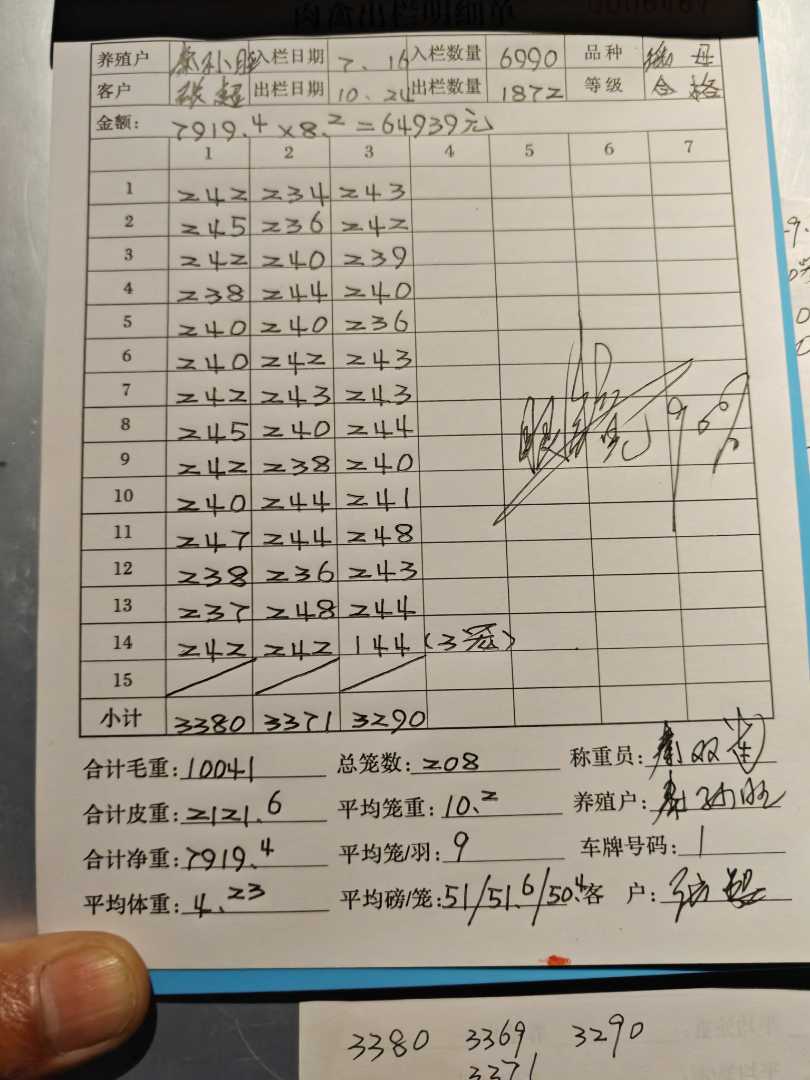 肉禽出栏明细单
养殖户 入栏日期 7.16 入栏数量 6990 品种
客户 张超 出栏日期 10.24 出栏数量 1872 等级 合格
金额: 7919.4×8.2=64939元
1 2 3 4 5 6 7
1 242 234 243
2 245 236 242
3 242 240 239
4 238 244 240
5 240 240 236
6 240 242 243
7 242 243 243
8 245 240 244
9 242 238 240
10 240 244 241
11 247 244 248
12 238 236 243
13 237 248 244
14 242 242 144 (3笼)
15
小计 3380 3371 3290
合计毛重: 10041 总笼数: 208 称重员:
合计皮重: 2121.6 平均笼重: 10.2 养殖户:
合计净重: 7919.4 平均笼/羽: 9 车牌号码: 1
平均体重: 4.23 平均磅/笼: 51/51.6/50.4 客 户: 张超
3380 3369 3290
3371